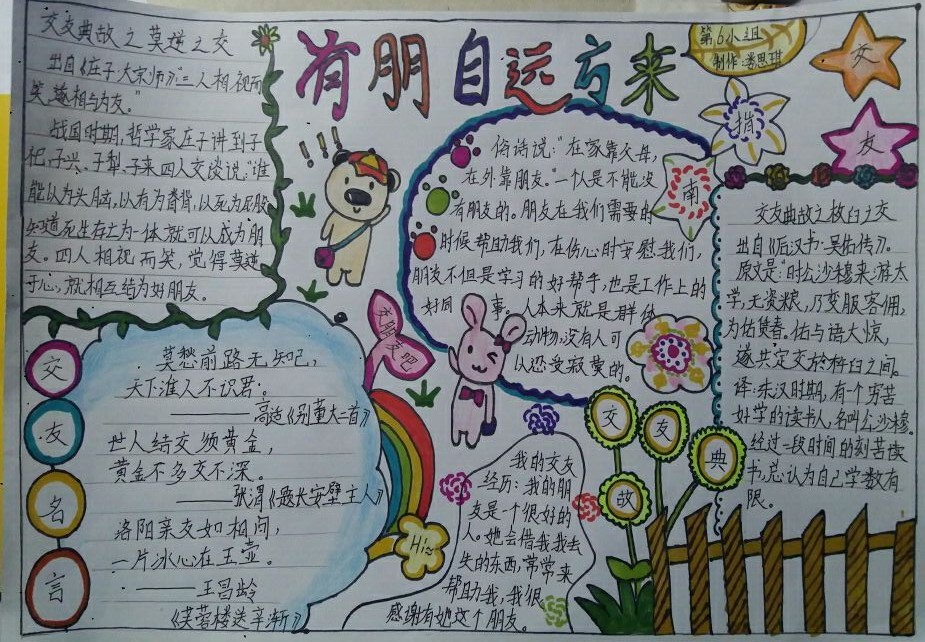 有朋自远方来
第6小组
制作:娄思琪
交
友
指
南
交友典故之莫逆之交
出自《庄子·大宗师》:“三人相视而
笑,遂相与为友。”
战国时期,哲学家庄子讲到子
祀、子兴、子犁、子来四人交谈说:“谁
能以为头脑,以有为脊背,以死为屁股
知道死生存亡为一体就可以成为朋
友。四人相视而笑,觉得莫逆
于心,就相互结为好朋友。
!!!
俗话说:“在家靠父母,
在外靠朋友。”一个人是不能没
有朋友的。朋友在我们需要的
时候帮助我们,在伤心时安慰我们,
朋友不但是学习的好帮手,也是工作上的
好同事。人本来就是群体
动物,没有人可
以忍受寂寞的。
交友典故之杵臼之交
出自《后汉书·吴佑传》。
原文是:时公沙穆来游太
学,无资粮,乃变服客佣,
为佑赁舂。佑与语大惊,
遂共定交於杵臼之间。
译:东汉时期,有个穷苦
好学的读书人,名叫公沙穆。
经过一段时间的刻苦读
书,总认为自己学数有
限。
交朋友吧
交
友
名
言
莫愁前路无知己,
天下谁人不识君;
——高适《别董大二首》
世人结交须黄金,
黄金不多交不深。
——张渭《题长安壁主人》
洛阳亲友如相问,
一片冰心在玉壶。
——王昌龄
《芙蓉楼送辛渐》
Hi~
我的交友
经历:我的朋
友是一个很好的
人。她会借我我丢
失的东西,常常来
帮助我,我很
感谢有她这个朋友。
文
友
典
故